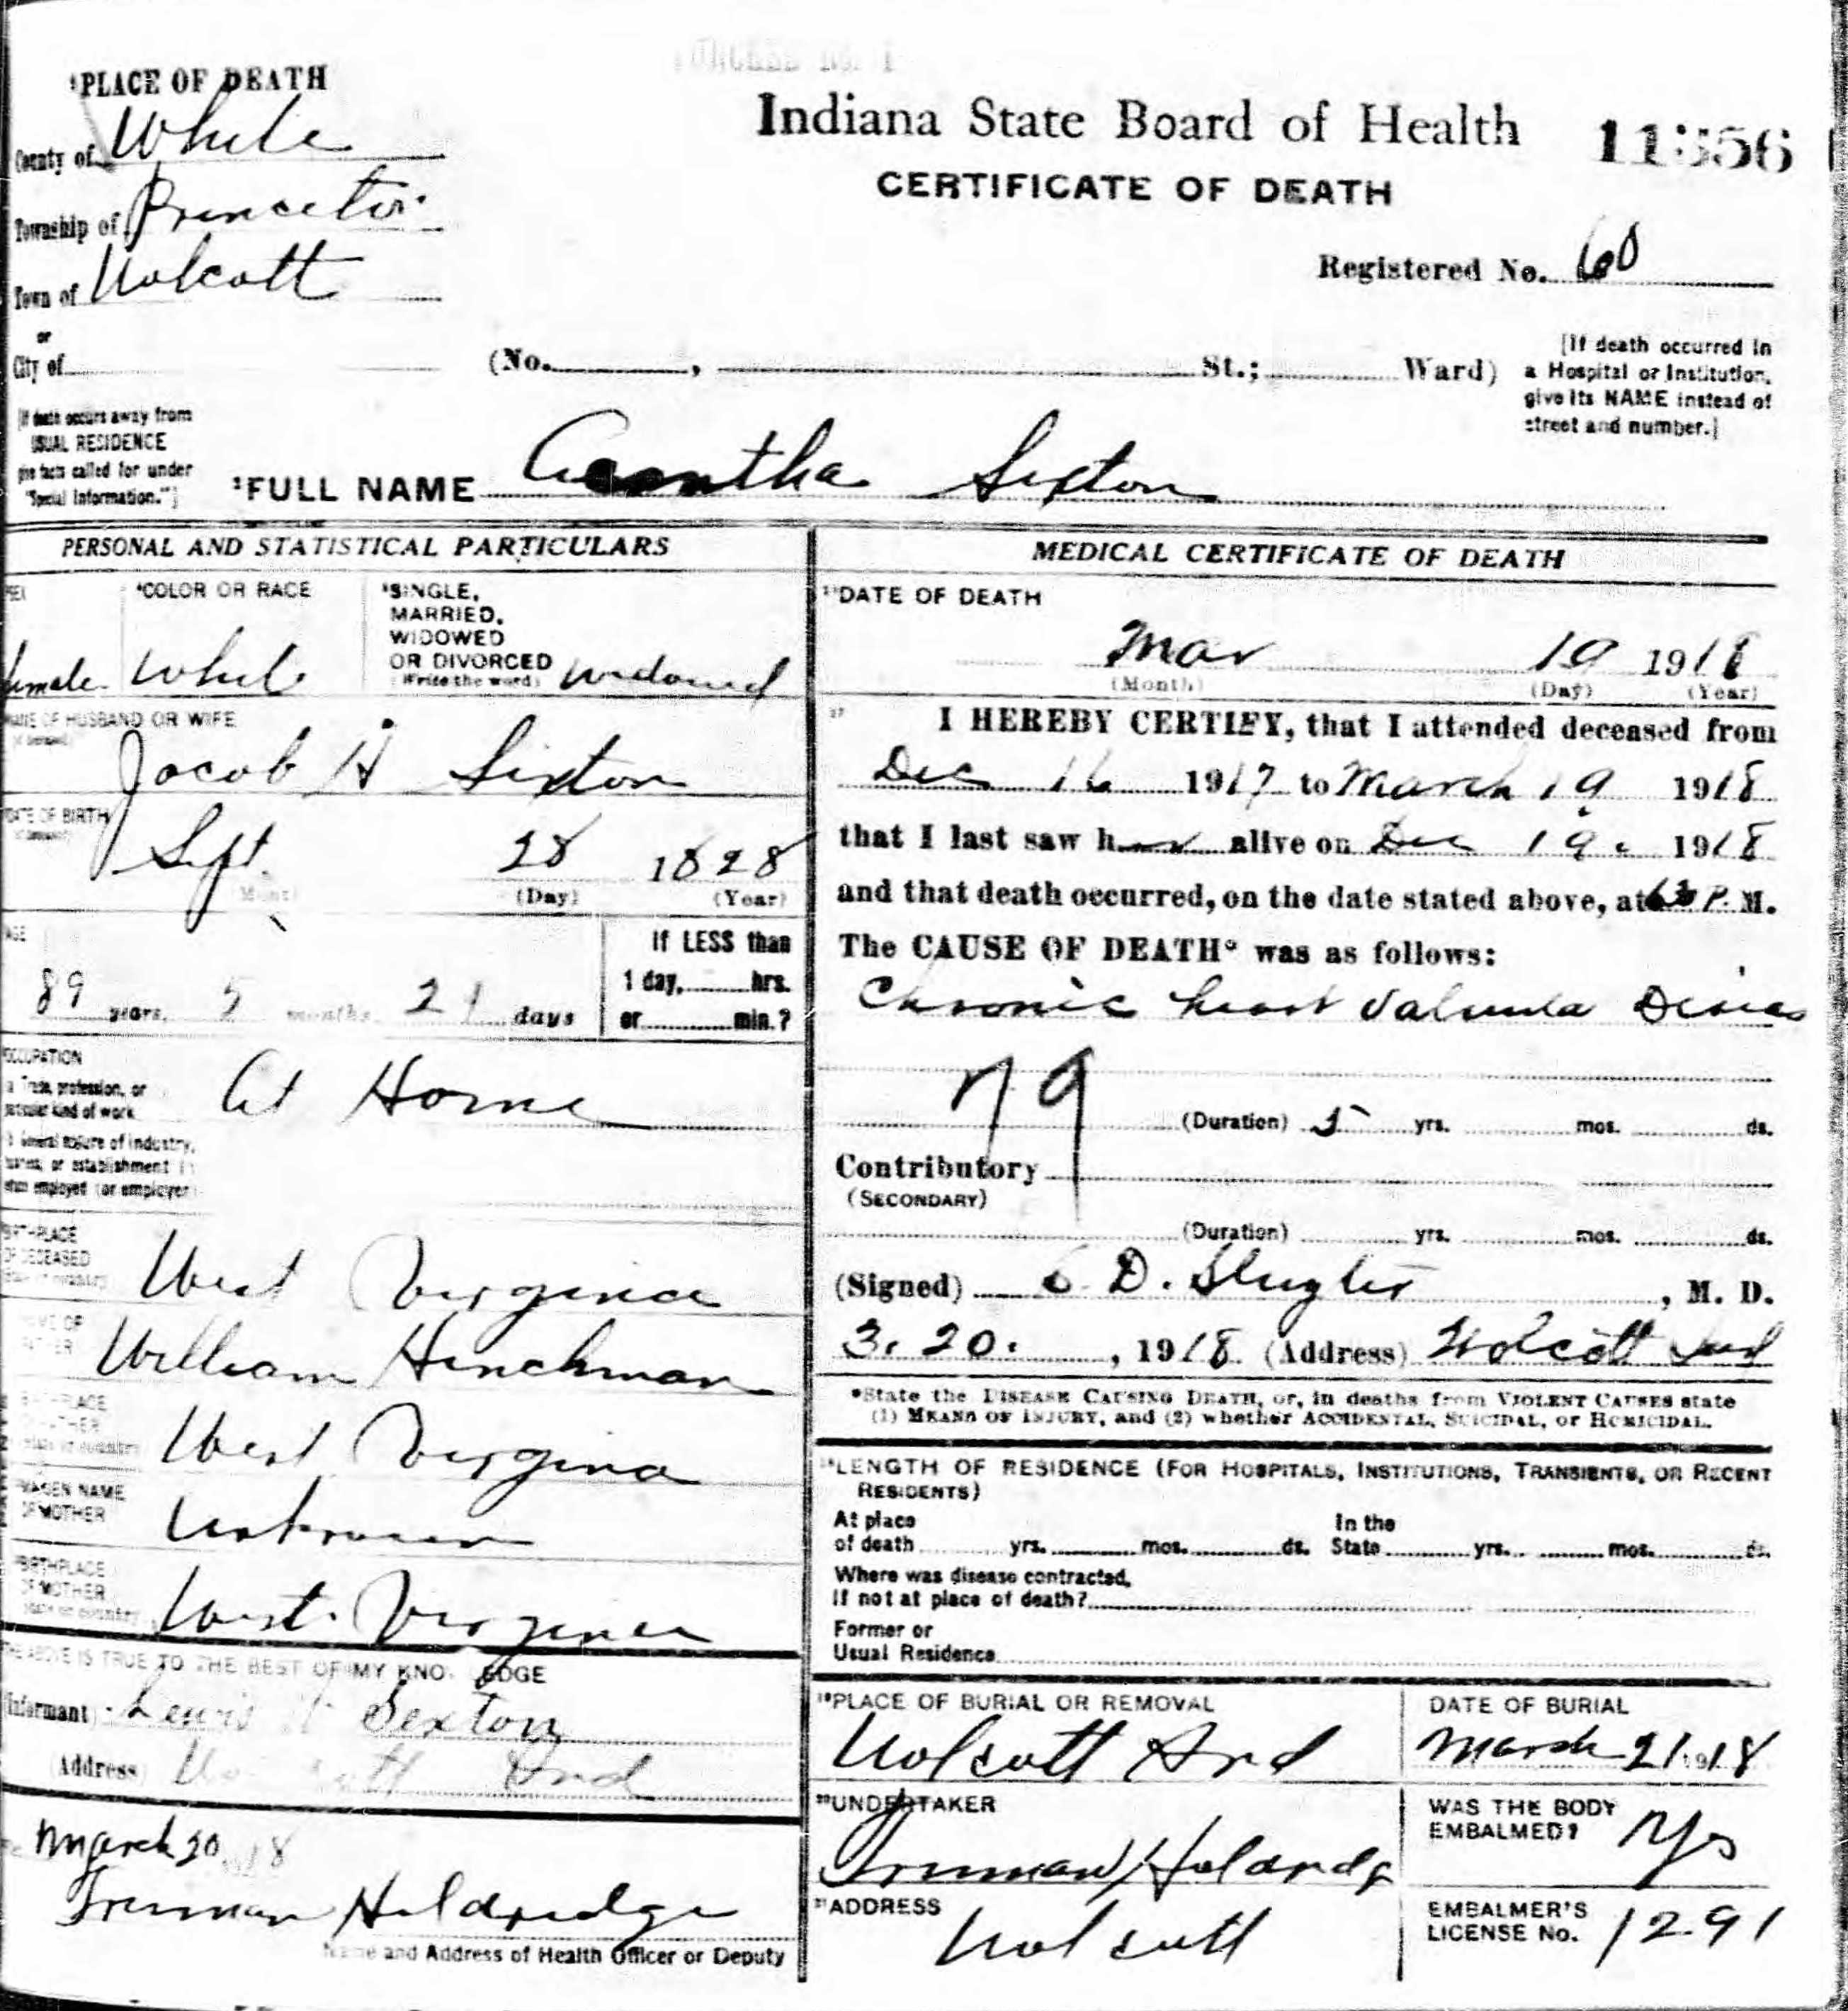 ¹PLACE OF DEATH
County of White
Township of Princeton
Town of Wolcott
or
City of
Indiana State Board of Health
CERTIFICATE OF DEATH
Registered No. 60
(No. , St.; Ward)
[If death occurred in
a Hospital or Institution,
give its NAME instead of
street and number.]
[If death occurs away from
USUAL RESIDENCE
give facts called for under
"Special Information."]
²FULL NAME Sexton
PERSONAL AND STATISTICAL PARTICULARS
SEX
female
⁴COLOR OR RACE
White
⁵SINGLE,
MARRIED,
WIDOWED
OR DIVORCED
(Write the word) Widowed
NAME OF HUSBAND OR WIFE
Jacob H Sexton
DATE OF BIRTH
Sept. 28 1828
(Month) (Day) (Year)
AGE
89 years, 5 months 21 days
If LESS than
1 day, hrs.
or min.?
OCCUPATION
(a) Trade, profession, or
particular kind of work
At Home
(b) General nature of industry,
business, or establishment in
which employed (or employer)
BIRTHPLACE
OF DECEASED
(State or country)
West Virginia
NAME OF
FATHER
William Hinchman
BIRTHPLACE
OF FATHER
(State or country)
West Virginia
MAIDEN NAME
OF MOTHER
Unknown
BIRTHPLACE
OF MOTHER
(State or country)
West Virginia
THE ABOVE IS TRUE TO THE BEST OF MY KNOWLEDGE
(Informant) Lewis Sexton
(Address) Wolcott Ind
March 20 1918
Truman Holdridge
Name and Address of Health Officer or Deputy
MEDICAL CERTIFICATE OF DEATH
¹⁶DATE OF DEATH
Mar 19 1918
(Month) (Day) (Year)
¹⁷ I HEREBY CERTIFY, that I attended deceased from
Dec 16 1917 to March 19 1918
that I last saw her alive on Dec 19. 1918
and that death occurred, on the date stated above, at P. M.
The CAUSE OF DEATH* was as follows:
Chronic heart Disease
79
(Duration) 5 yrs. mos. ds.
Contributory
(SECONDARY)
(Duration) yrs. mos. ds.
(Signed) D. , M. D.
3. 20. , 1918 (Address) Wolcott Ind
*State the DISEASE CAUSING DEATH, or, in deaths from VIOLENT CAUSES state
(1) MEANS OF INJURY, and (2) whether ACCIDENTAL, SUICIDAL, or HOMICIDAL.
¹⁸LENGTH OF RESIDENCE (FOR HOSPITALS, INSTITUTIONS, TRANSIENTS, OR RECENT
RESIDENTS)
At place
of death yrs. mos. ds.
In the
State yrs. mos. ds.
Where was disease contracted,
If not at place of death?
Former or
Usual Residence
¹⁹PLACE OF BURIAL OR REMOVAL
Wolcott Ind
DATE OF BURIAL
March 21 1918
²⁰UNDERTAKER
Truman Holdridge
WAS THE BODY
EMBALMED? Yes
²¹ADDRESS
Wolcott
EMBALMER'S
LICENSE No. 1291